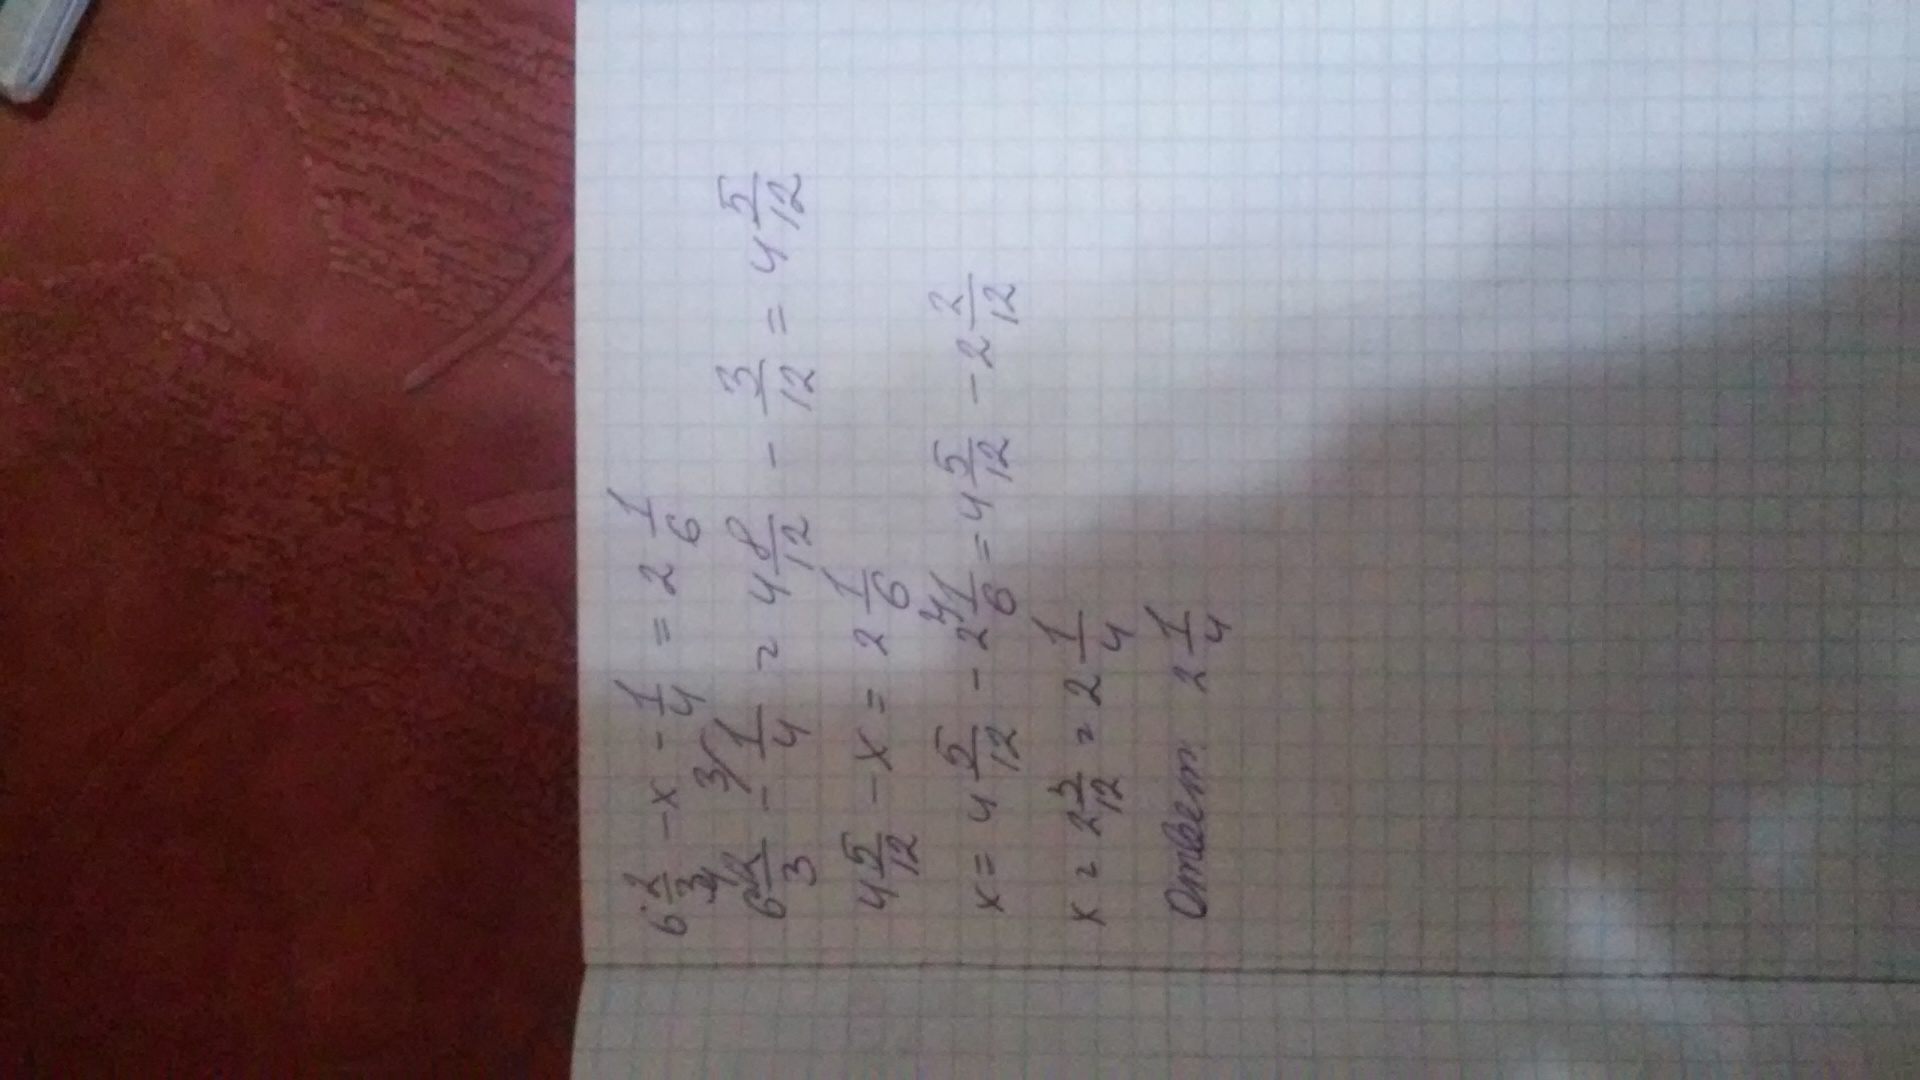 6 2/3 - x - 1/4 = 2 1/6
6 2/3 - 1/4 = 4 8/12 - 3/12 = 4 5/12
4 5/12 - x = 2 1/6
x = 4 5/12 - 2 1/6 = 4 5/12 - 2 2/12
x = 2 3/12 = 2 1/4
Ответ 2 1/4